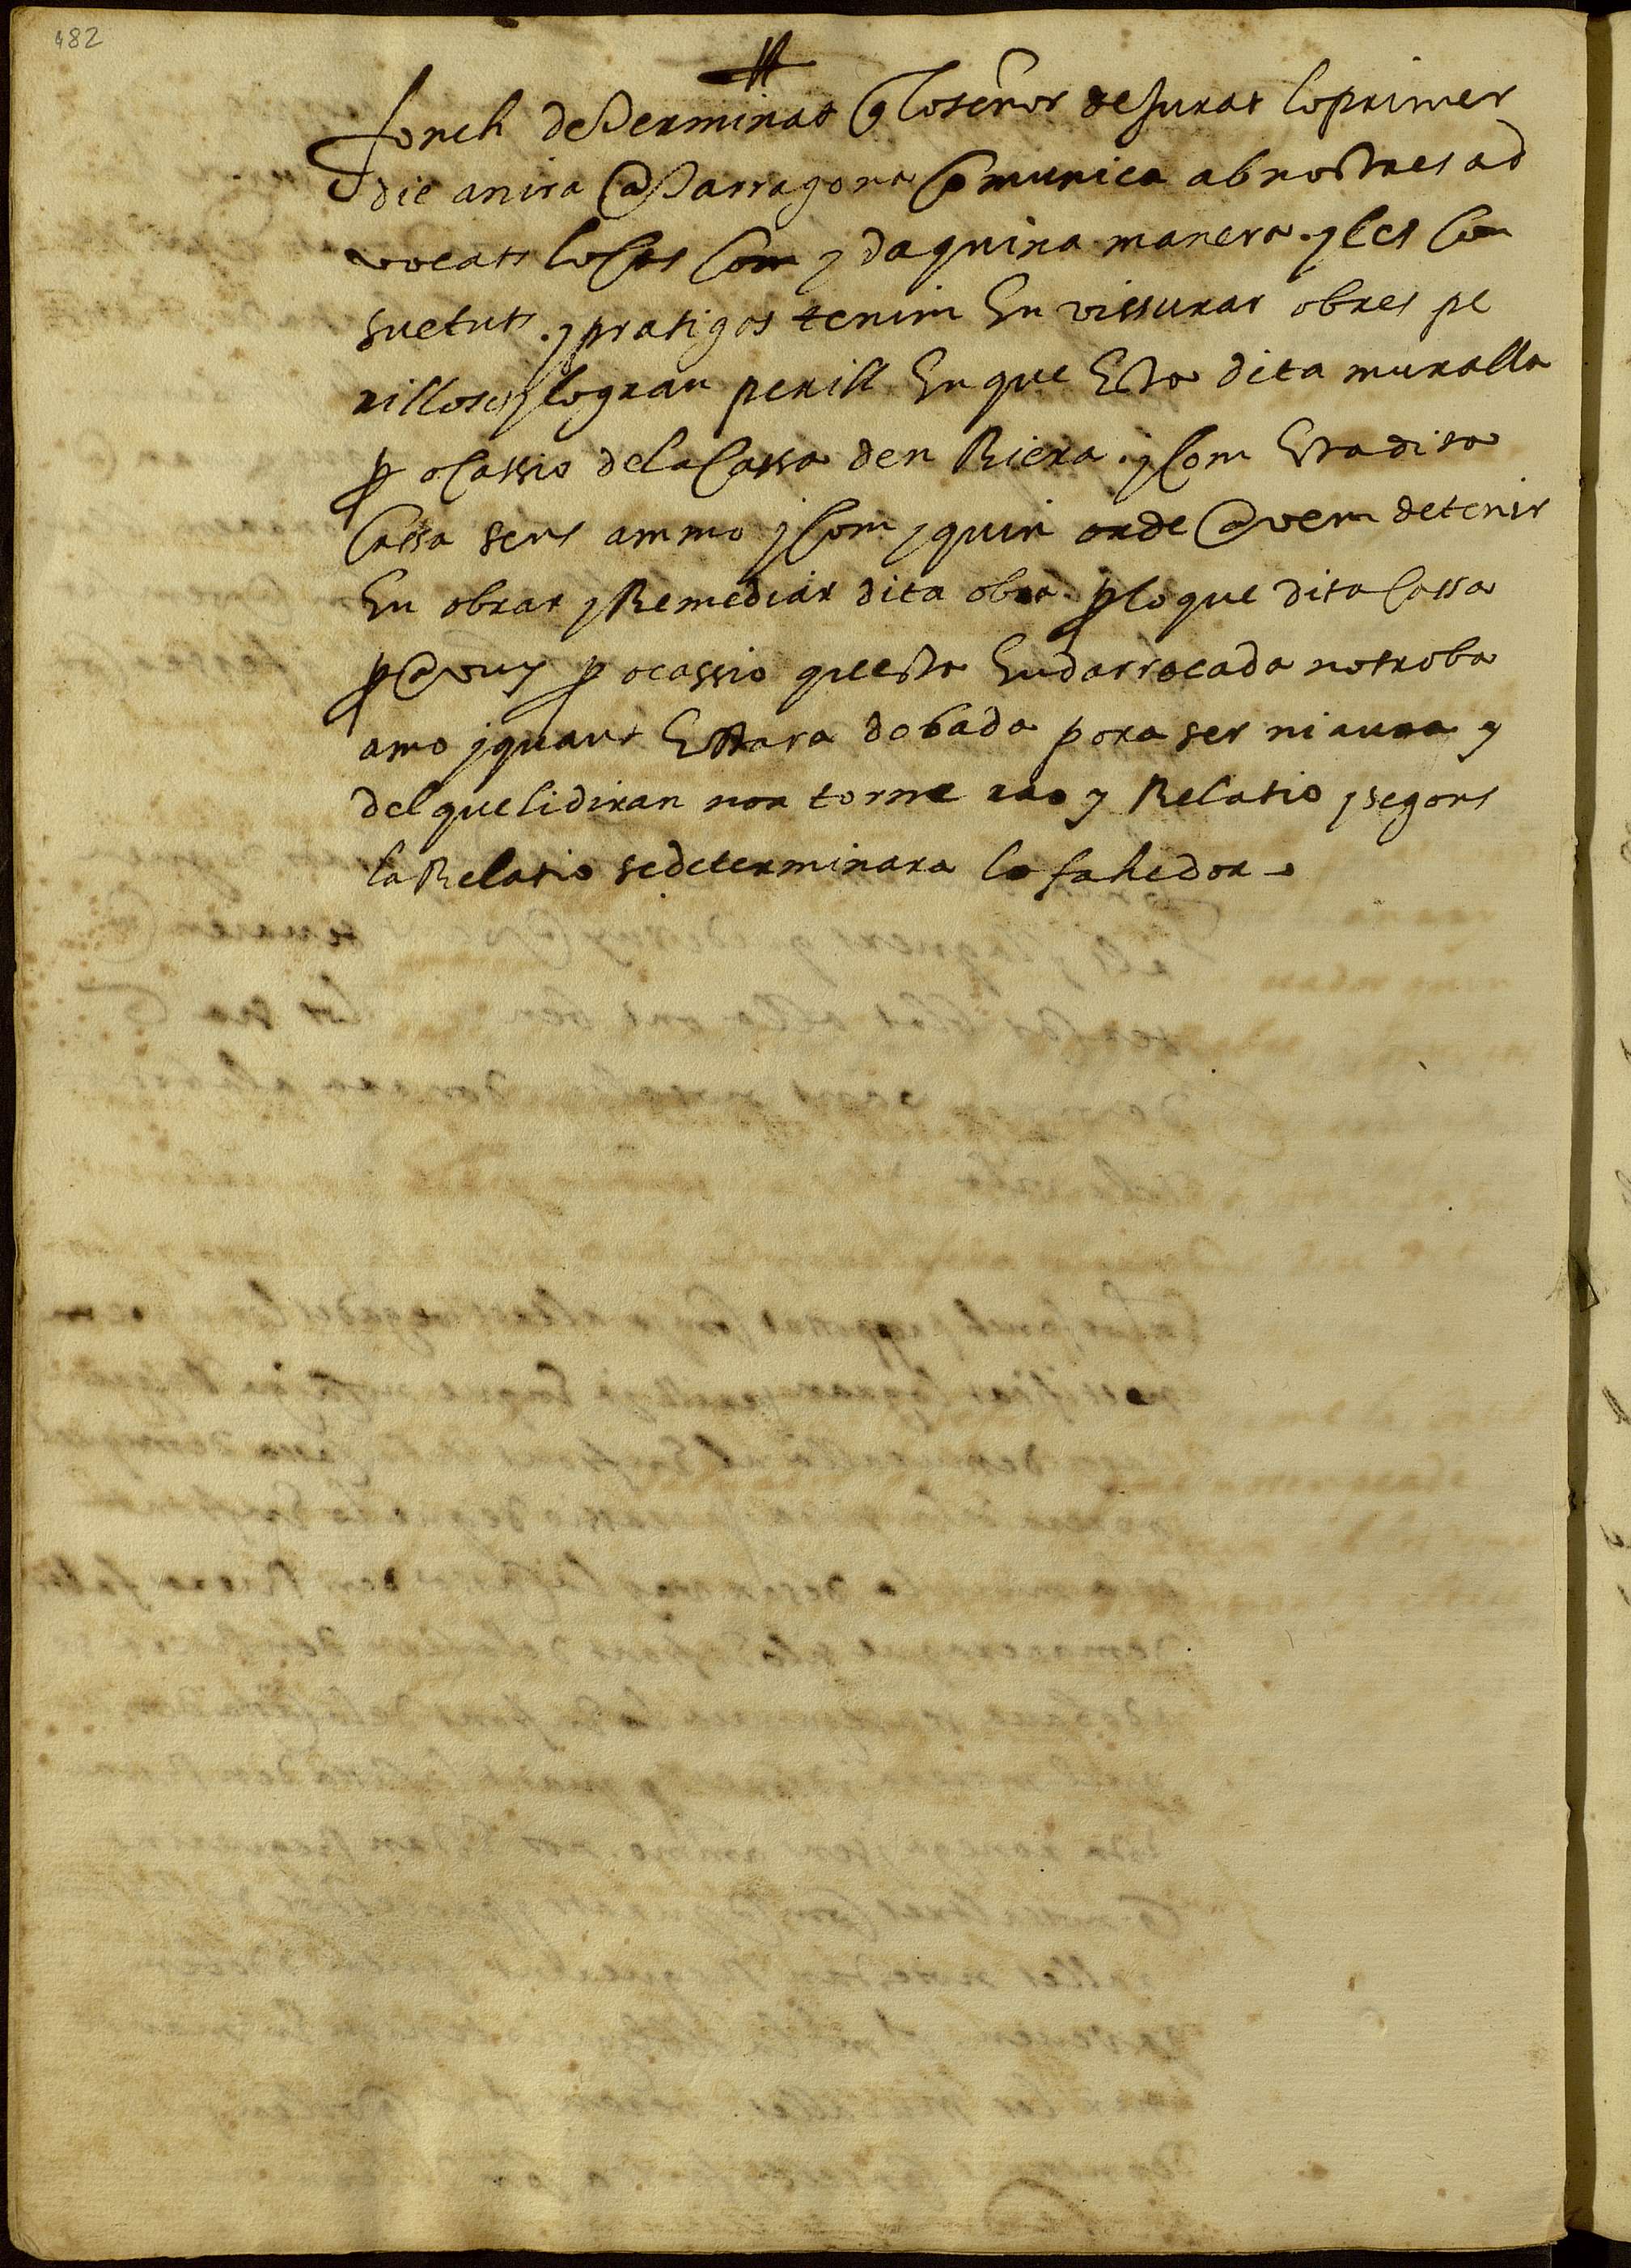 482
fonch determinat q lo señor de jurat lo primer
die anira a tarragona Comunica ab nostres ad
vocats lo Cas Com y daquina manera y les Con
suetuts y pratigas tenim En vissurar obres pe
rilloses y lo gran perill En que Esta dita muralla
p ocassio de la Cassa den Riera y Com Esta dita
Cassa sens ammo y Com y quin orde avem de tenir
En obrar y Remediar dita obra p lo que dita Cassa
p avuy p ocassio questa Endarrocada no troba
amo y quant Estara dobada pora ser ni aura y
del que li diran nos torne rao y Relatio y segons
la Relatio se determinara lo fahedor